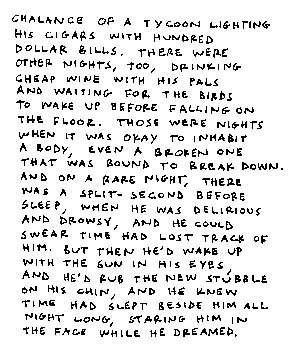 CHALANCE OF A TYCOON LIGHTING
HIS CIGARS WITH HUNDRED
DOLLAR BILLS. THERE WERE
OTHER NIGHTS, TOO, DRINKING
CHEAP WINE WITH HIS PALS
AND WAITING FOR THE BIRDS
TO WAKE UP BEFORE FALLING ON
THE FLOOR. THOSE WERE NIGHTS
WHEN IT WAS OKAY TO INHABIT
A BODY, EVEN A BROKEN ONE
THAT WAS BOUND TO BREAK DOWN.
AND ON A RARE NIGHT, THERE
WAS A SPLIT-SECOND BEFORE
SLEEP, WHEN HE WAS DELIRIOUS
AND DROWSY, AND HE COULD
SWEAR TIME HAD LOST TRACK OF
HIM. BUT THEN HE'D WAKE UP
WITH THE SUN IN HIS EYES,
AND HE'D RUB THE NEW STUBBLE
ON HIS CHIN, AND HE KNEW
TIME HAD SLEPT BESIDE HIM ALL
NIGHT LONG, STARING HIM IN
THE FACE WHILE HE DREAMED.